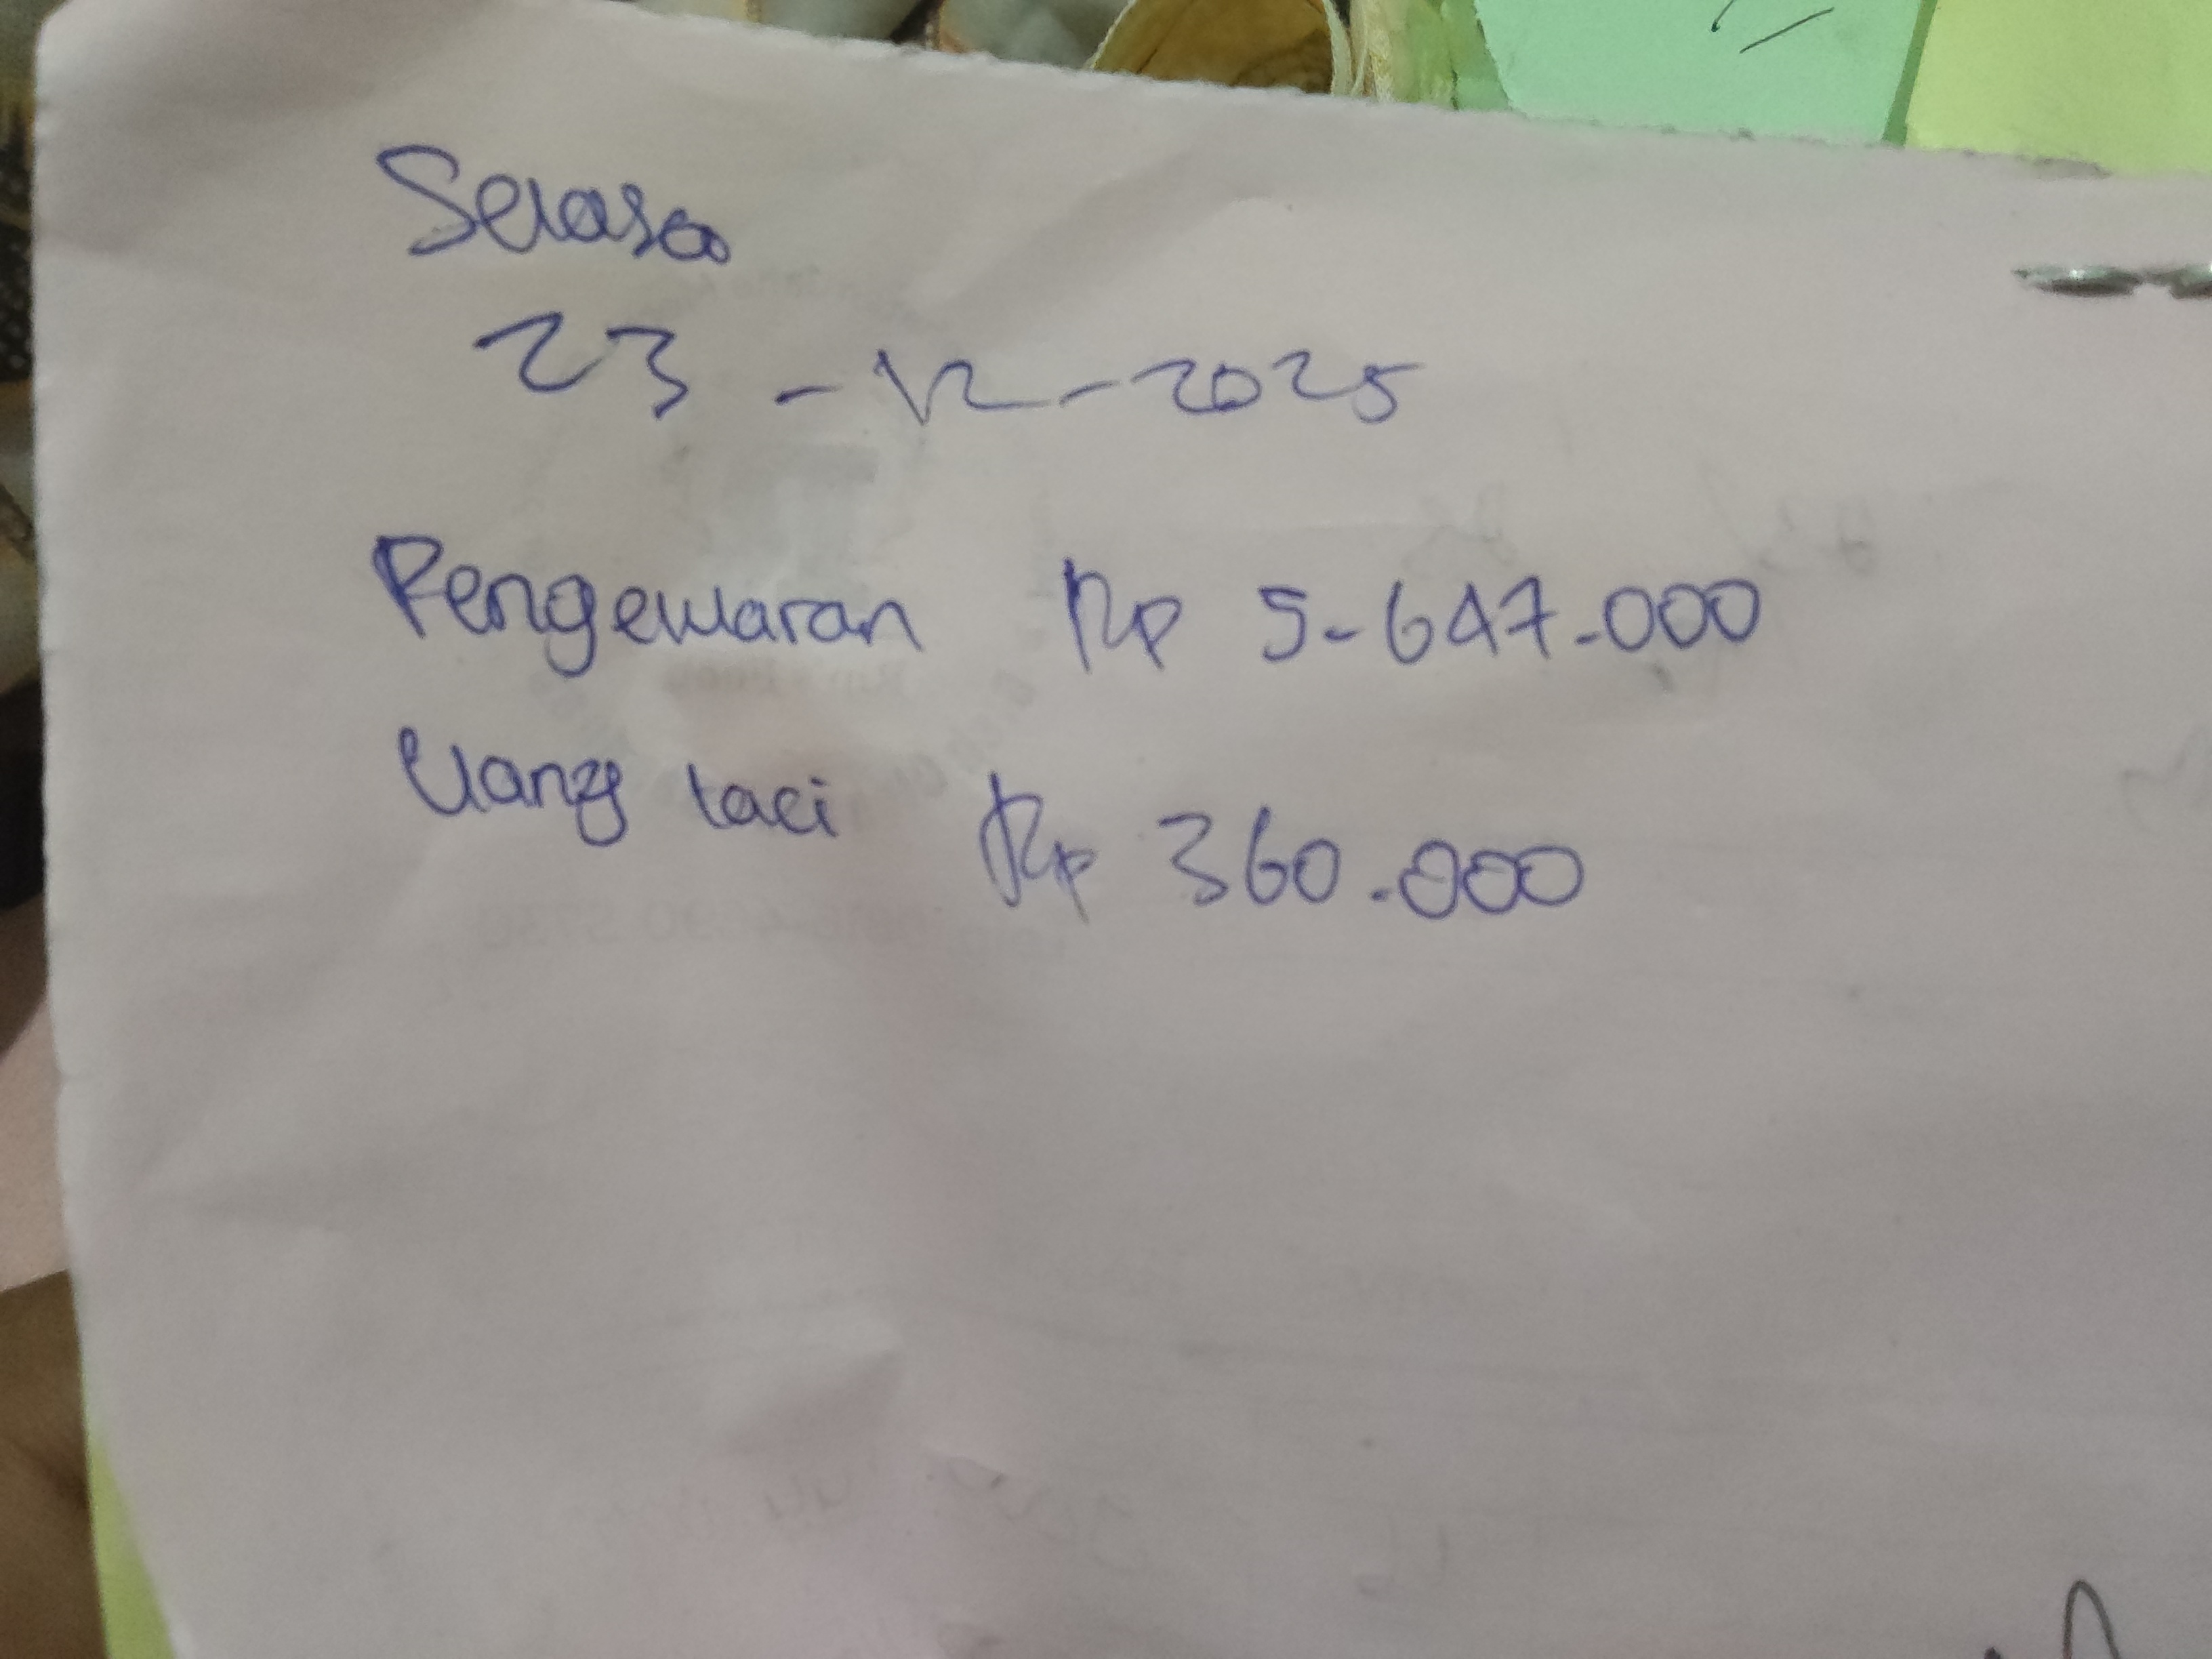 Selasa
23 - 12 - 2025
Pengeluaran Rp 5.647.000
Uang laci Rp 360.000